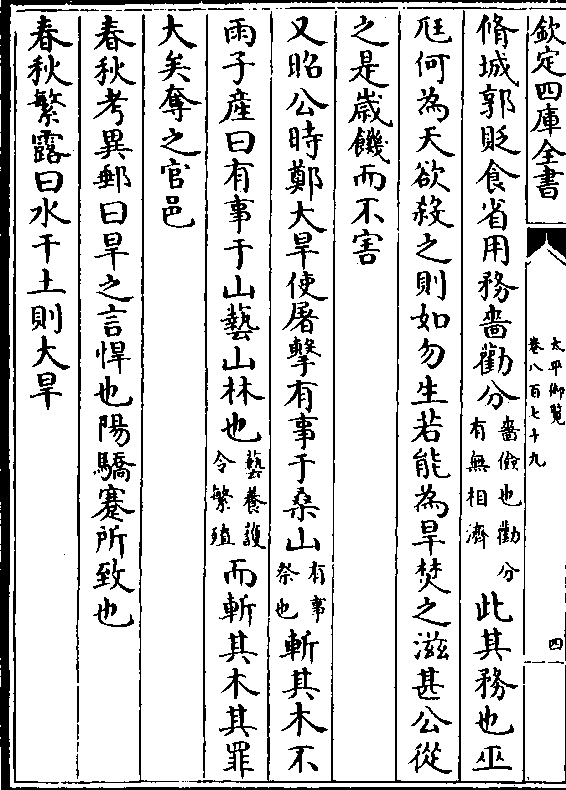 欽定四庫全書
太平御覧
卷八百七十九
四
脩城郭貶食省用務嗇勸分嗇儉也勸分有無相濟此其務也巫
尫何為天欲殺之則如勿生若能為旱焚之滋甚公從
之是歲饑而不害
又昭公時鄭大旱使屠擊有事于桑山有事祭也斬其木不
雨子產曰有事于山藝山林也藝養護令繁殖而斬其木其罪
大矣奪之官邑
春秋考異郵曰旱之言悍也陽驕蹇所致也
春秋繁露曰水干土則大旱